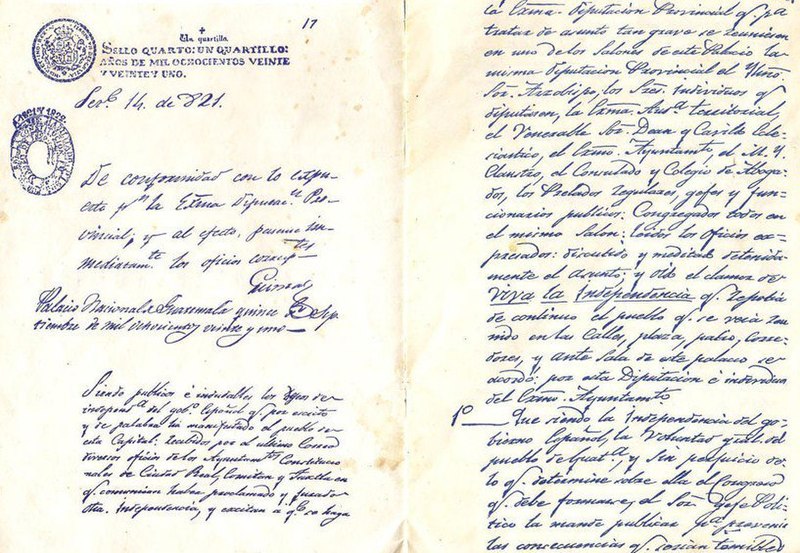 17
Un quartillo.
SELLO QUARTO: UN QUARTILLO:
AÑOS DE MIL OCHOCIENTOS VEINTE
Y VEINTE Y UNO.
14. de 821.
De conformidad con lo expu-
esto pr. la Exma Diputacn. Pro-
vincial; y al efecto, pasense in-
mediatamte. los oficios corresp-
tes
Palacio Nacional de Guatemala quince de Sep-
tiembre de mil ochocientos veinte y uno
Siendo publicos é indudables los deseos de
independa. del gobo. Español qe. por escrito
y de palabra ha manifestado el pueblo de
esta Capital: Recibidos por el ultimo Correo
diversos oficios de los Ayuntamtos Constitucio-
nales de Ciudad Real, Comitan y Tuxtla en
qe. comunican haber proclamado y jurado
dha. Independencia, y excitan á qe. se haga
la Exma. Diputacion Provincial qe. pa.
tratar de asunto tan grave se reuniesen
en uno de los Salones de este Palacio la
misma Diputacion Provincial el Illmo
Sor. Arzobispo, los Sres. Individuos qe.
diputasen, la Exma. Auda. territorial,
el Venerable Sor. Dean y Cavildo Ecle-
siastico, el Exmo. Ayuntamto, el M. Y.
Claustro, el Consulado y Colegio de Aboga-
dos, los Prelados regulares, gefes y fun-
cionarios publicos: Congregados todos en
el mismo Salon: leidos los oficios ex-
presados: discutido y meditado detenida-
mente el asunto; y oido el clamor de
VIVA LA Independencia qe. repetia
de continuo el pueblo qe. se veia reu-
nido en las calles, plaza, patio, corre-
dores, y ante sala de este palacio se
acordó: por esta Diputacion é individuos
del Exmo. Ayuntamto
1o. Que siendo la Independencia del go-
bierno Español, la Voluntad gral. del
pueblo de Guata. y sin perjuicio de
lo qe. determine sobre ella el Congreso
qe. debe formarse, el Sor. Gefe Polí-
tico la mande publicar pa. prevenir
las consecuencias qe. serian temibles